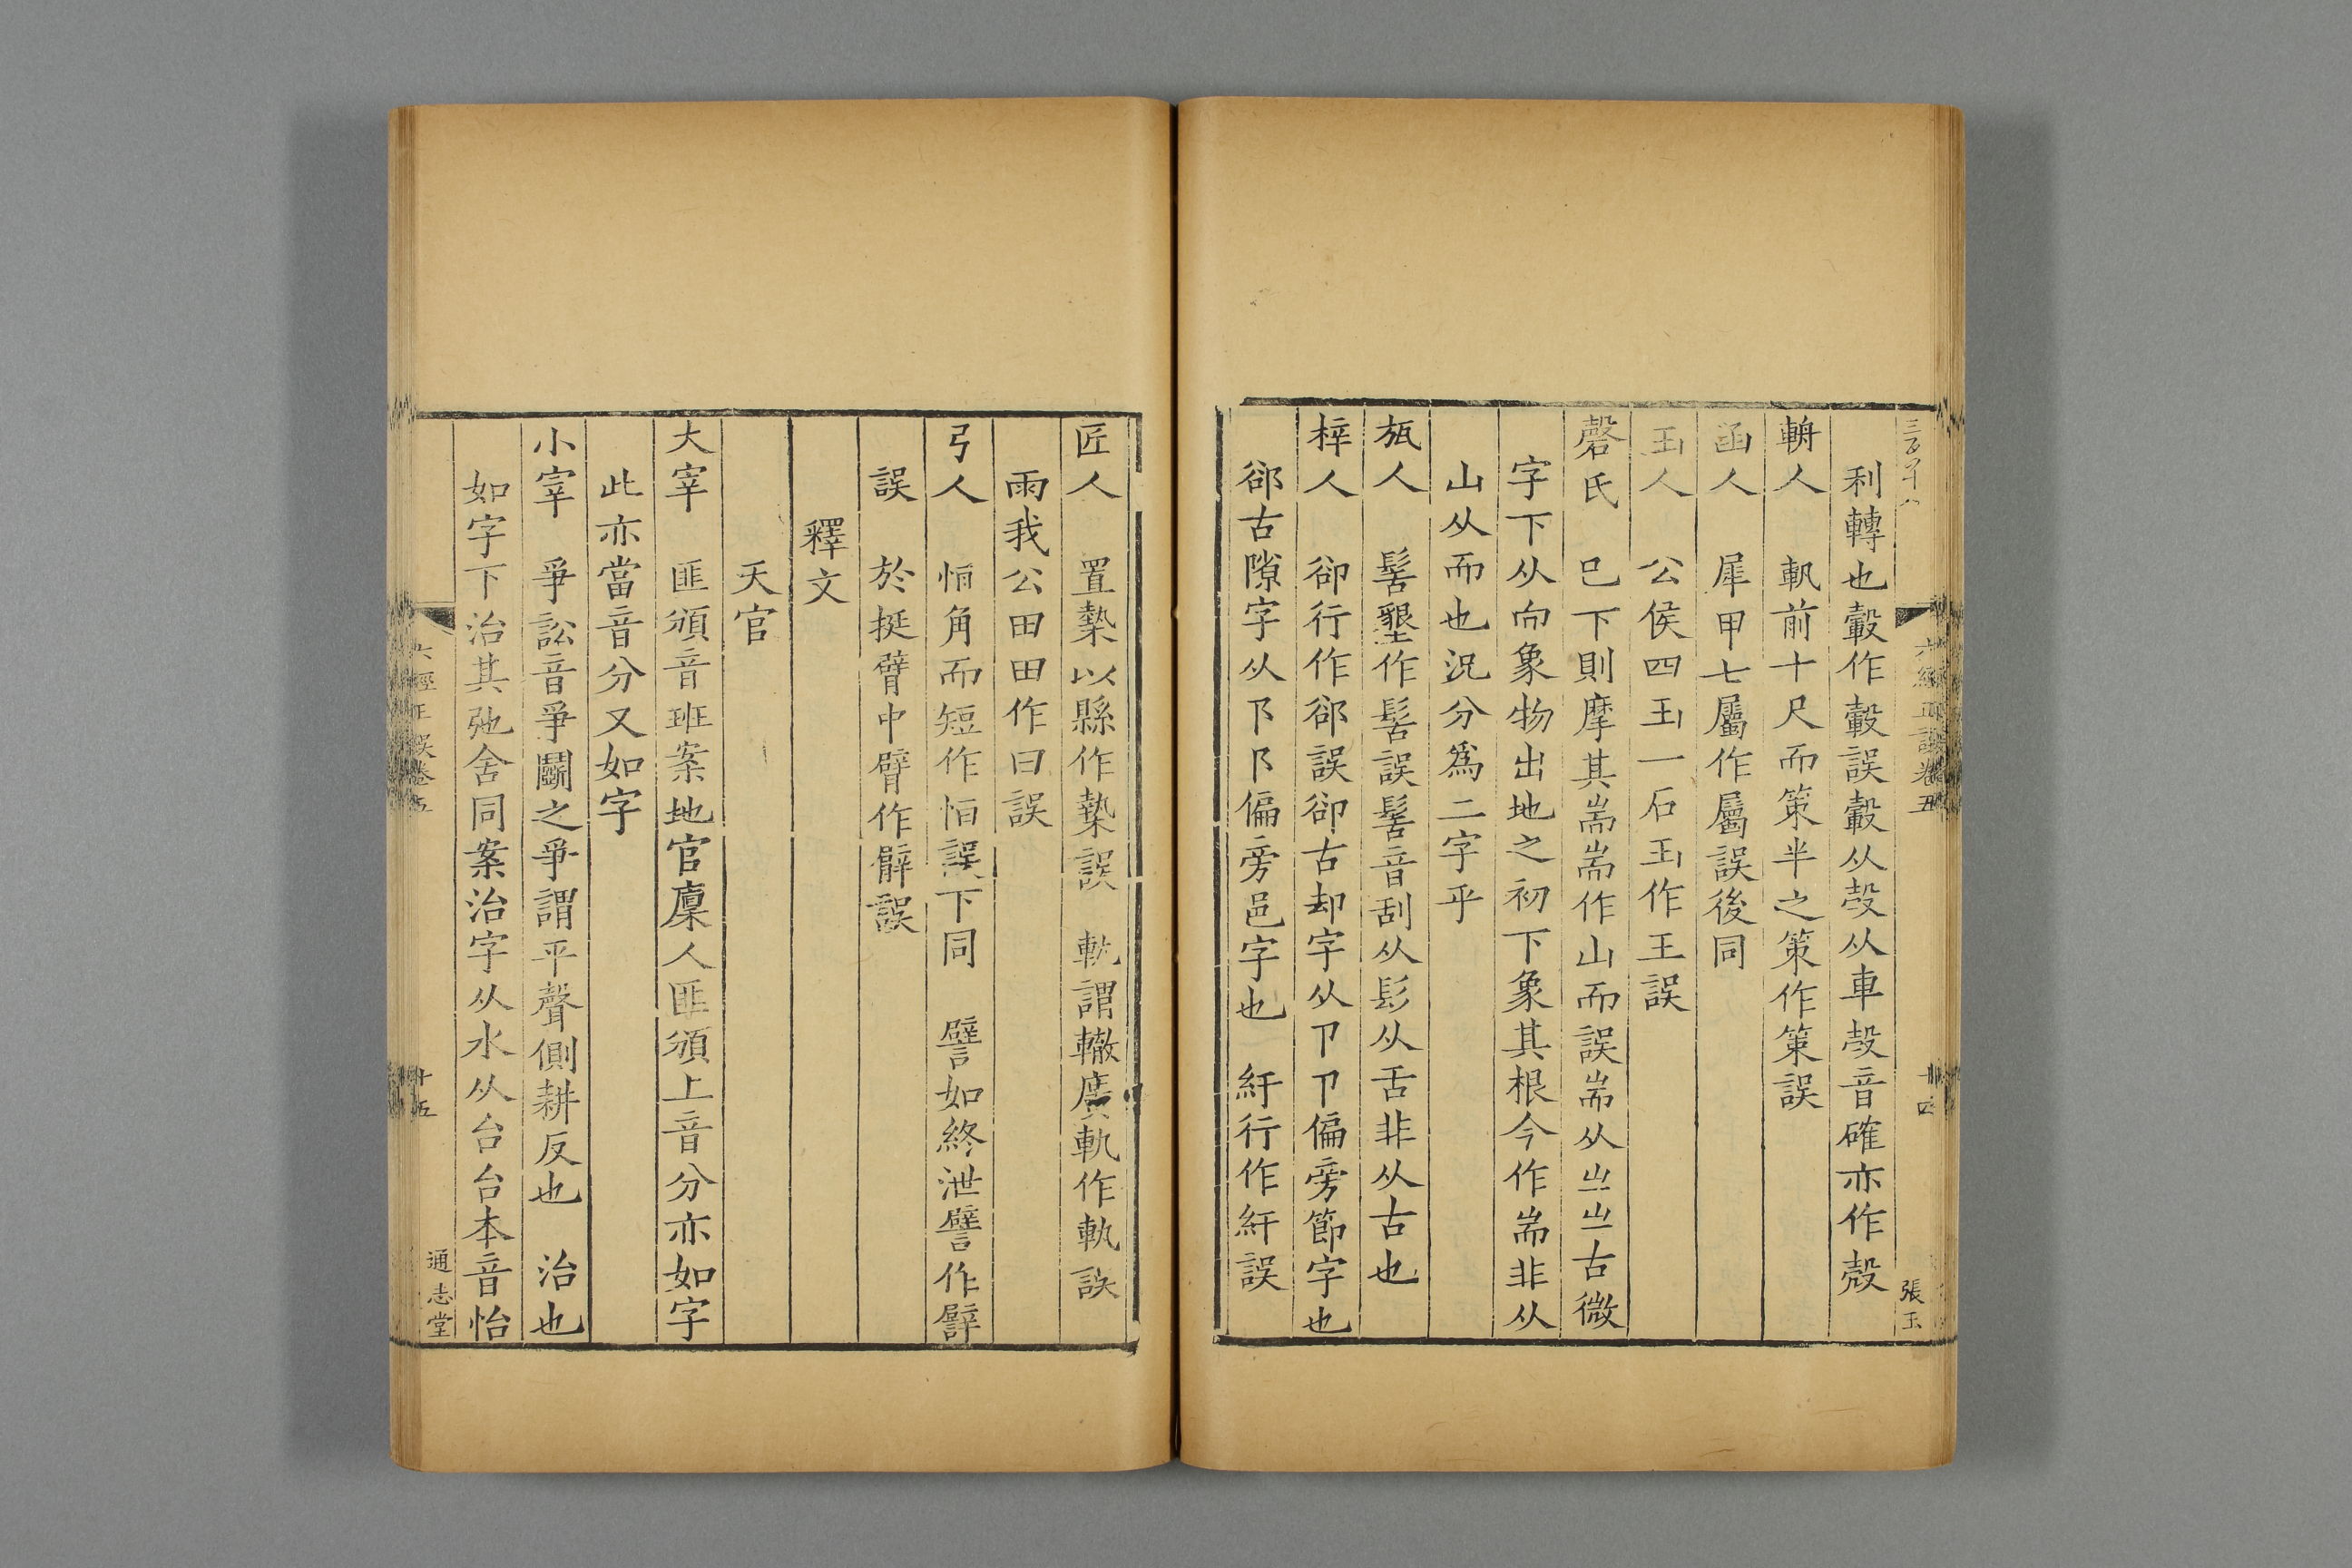 利轉也轂作轂誤轂从㱿从車㱿音確亦作殻
輈人　軓前十尺而策半之策作䇿誤
函人　犀甲七屬作屬誤後同
玉人　公侯四玉一石玉作王誤
磬氏　已下則摩其耑耑作山而誤耑从㞢㞢古微
字下从而象物出地之初下象其根今作耑非从
山从而也況分為二字乎
瓬人　髺墾作髺誤髺音刮从髟从舌非从古也
梓人　卻行作郤誤卻古却字从卩卩偏旁節字也
郤古隙字从阝阝偏旁邑字也　紆行作紆誤
匠人　置槷以縣作槷誤　軌謂轍廣軌作軌誤
雨我公田田作曰誤
弓人　恒角而短作恒誤下同　譬如終泄譬作譬
誤　於挺臂中臂作辟誤
釋文
天官
大宰　匪頒音班案地官廩人匪頒上音分亦如字
此亦當音分又如字
小宰　爭訟音爭鬬之爭謂平聲側耕反也　治也
如字下治其弛舍同案治字从水从台台本音怡
六經正誤卷五
十五
通志堂
六經正誤卷五
十四
張玉